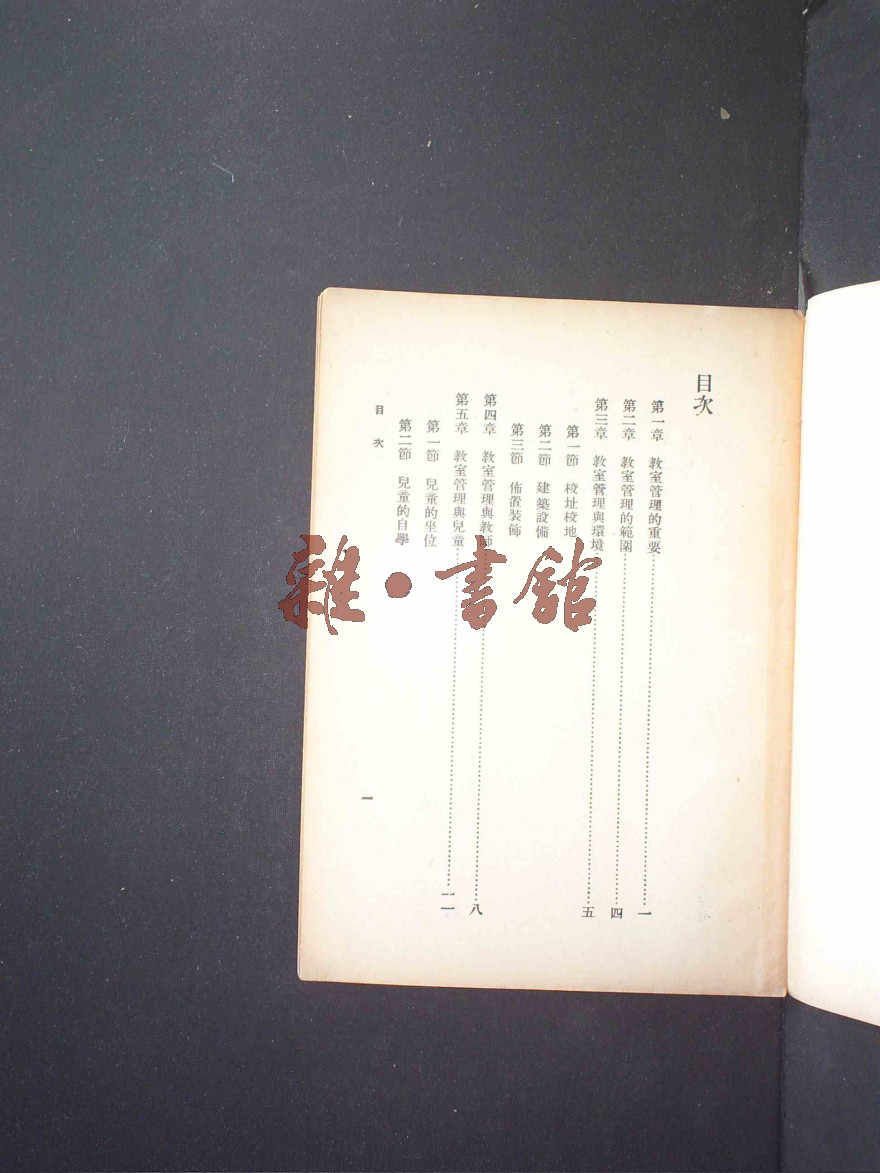 目次
第一章 教室管理的重要 一
第二章 教室管理的範圍 四
第三章 教室管理與環境 五
第一節 校址校地
第二節 建築設備
第三節 佈置裝飾
第四章 教室管理與教師 八
第五章 教室管理與兒童 一一
第一節 兒童的坐位
第二節 兒童的自學
目次
一
雜·書館